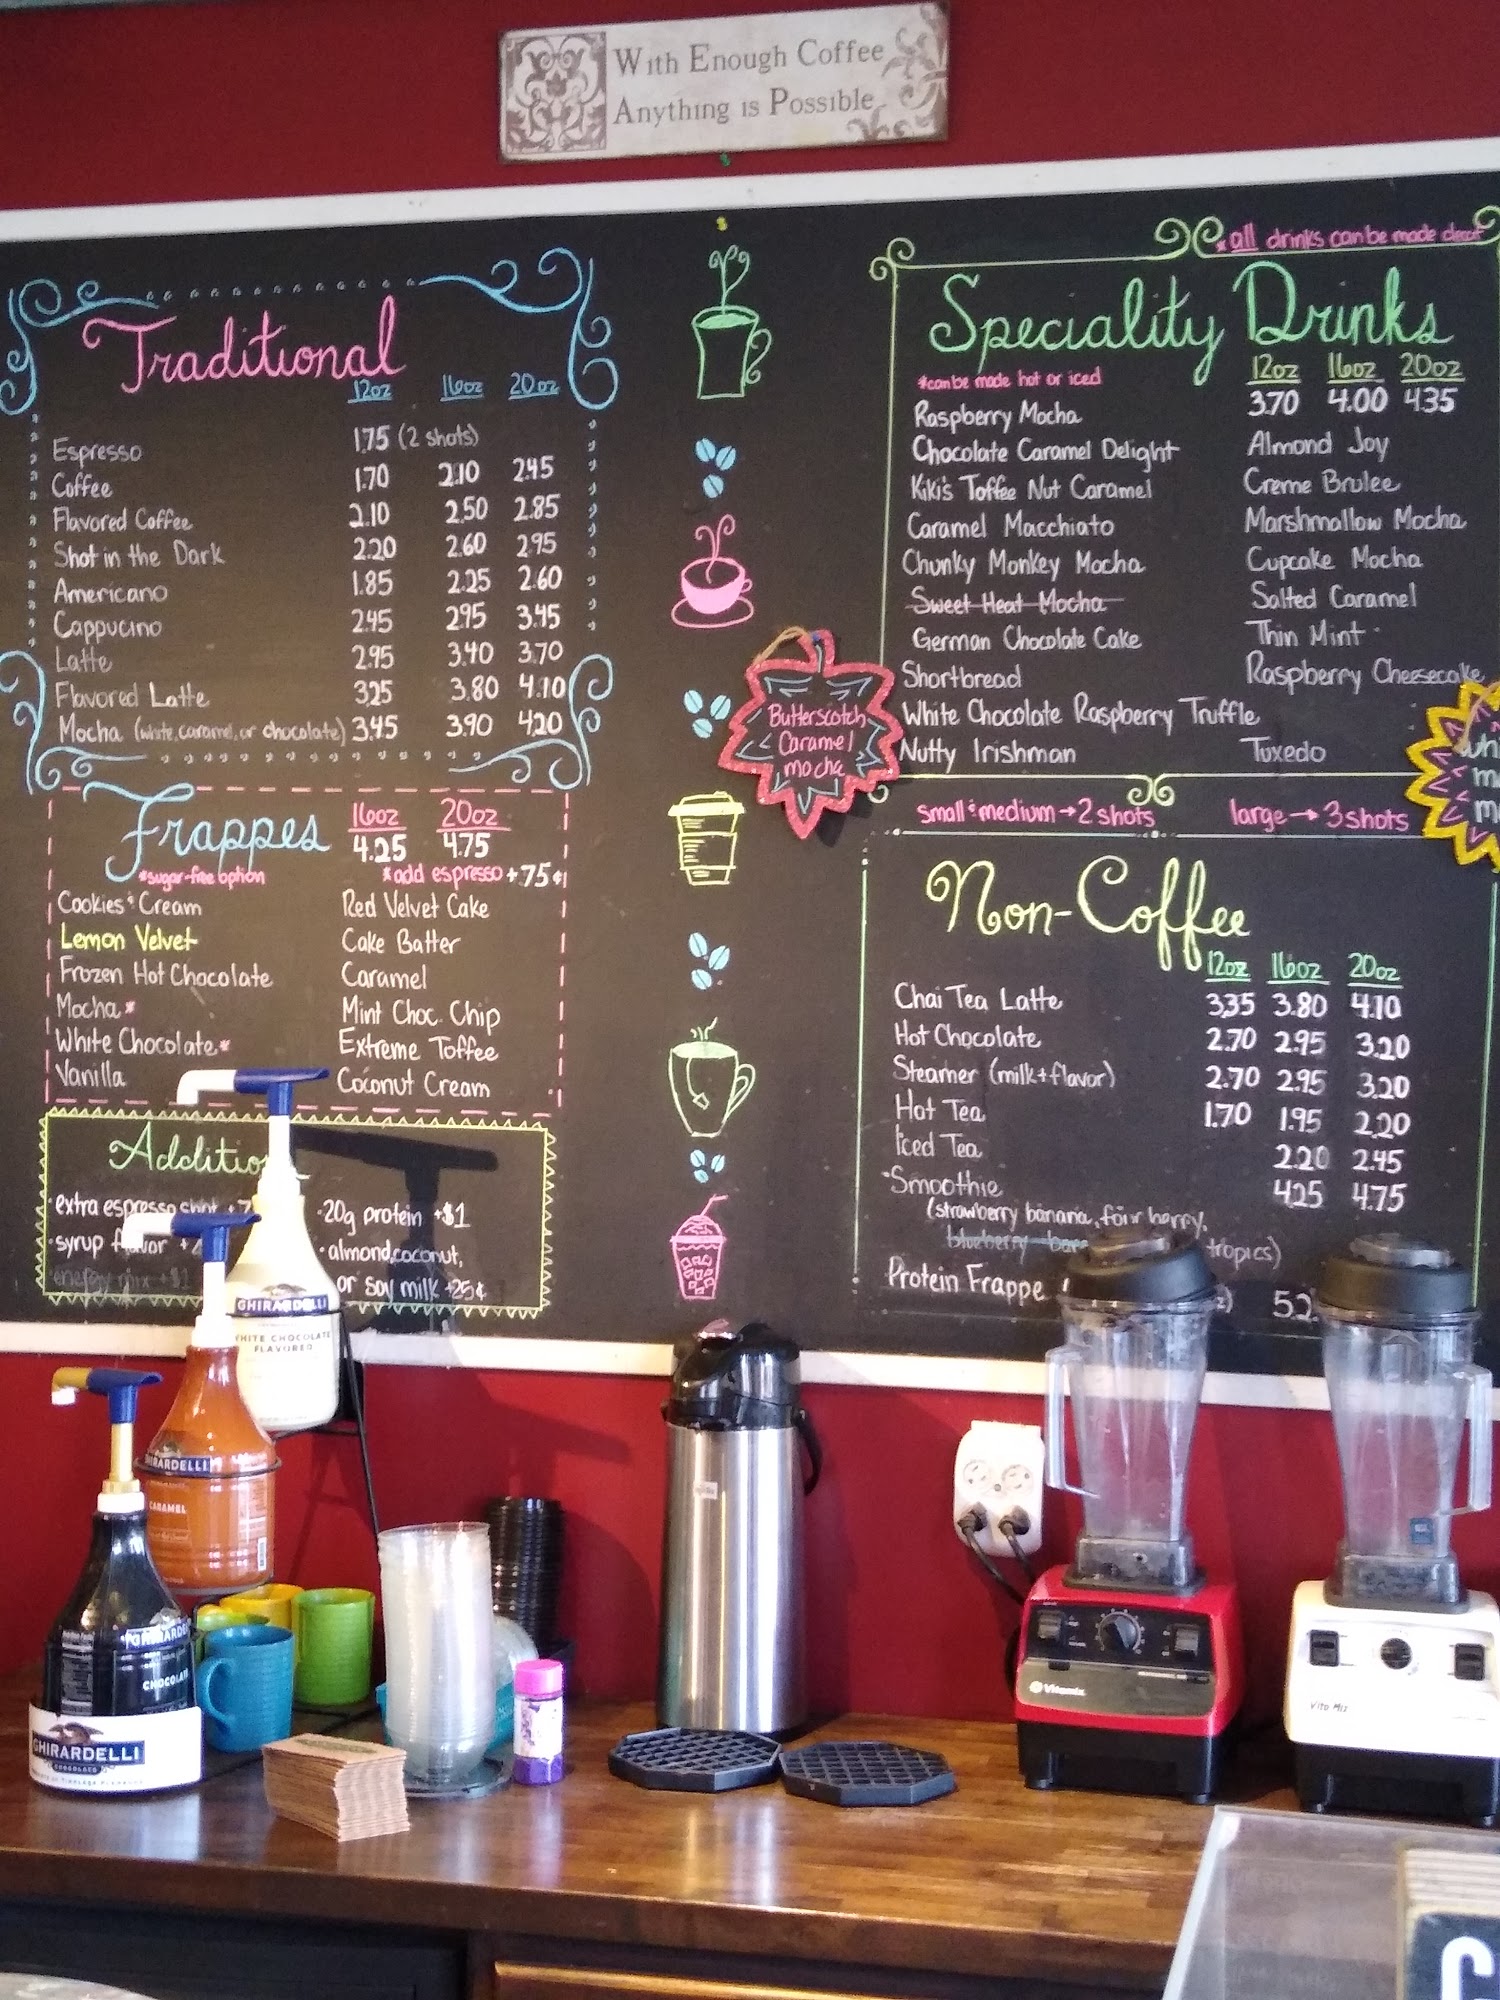 With Enough Coffee
Anything is Possible
Traditional
12oz 16oz 20oz
Espresso 1.75 (2 shots)
Coffee 1.70 2.10 2.45
Flavored Coffee 2.10 2.50 2.85
Shot in the Dark 2.20 2.60 2.95
Americano 1.85 2.25 2.60
Cappucino 2.45 2.95 3.45
Latte 2.95 3.40 3.70
Flavored Latte 3.25 3.80 4.10
Mocha (white, caramel, or chocolate) 3.45 3.90 4.20
Frappes 16oz 20oz
4.25 4.75
*sugar-free option *add espresso +.75¢
Cookies & Cream Red Velvet Cake
Lemon Velvet Cake Batter
Frozen Hot Chocolate Caramel
Mocha* Mint Choc. Chip
White Chocolate* Extreme Toffee
Vanilla Coconut Cream
extra espresso shot +
•20g protein +$1
•syrup flavor +
•almond, coconut,
or soy milk +25¢
•energy mix +$1
Butterscotch
Caramel
mocha
*all drinks can be made decaf
Speciality Drinks
*can be made hot or iced
12oz 16oz 20oz
3.70 4.00 4.35
Raspberry Mocha
Chocolate Caramel Delight Almond Joy
Kiki's Toffee Nut Caramel Creme Brulee
Caramel Macchiato Marshmallow Mocha
Chunky Monkey Mocha Cupcake Mocha
Sweet Heat Mocha Salted Caramel
German Chocolate Cake Thin Mint
Shortbread Raspberry Cheesecake
White Chocolate Raspberry Truffle
Nutty Irishman Tuxedo
small & medium → 2 shots large → 3 shots
Non-Coffee
12oz 16oz 20oz
Chai Tea Latte 3.35 3.80 4.10
Hot Chocolate 2.70 2.95 3.20
Steamer (milk+flavor) 2.70 2.95 3.20
Hot Tea 1.70 1.95 2.20
Iced Tea 2.20 2.45
•Smoothie 4.25 4.75
(strawberry banana, four berry,
blueberry tropics)
Protein Frappe
GHIRARDELLI
WHITE CHOCOLATE
FLAVORED
GHIRARDELLI
CARAMEL
GHIRARDELLI
CHOCOLATE
GHIRARDELLI
CHOCOLATE
Vitamix
Vita Mix